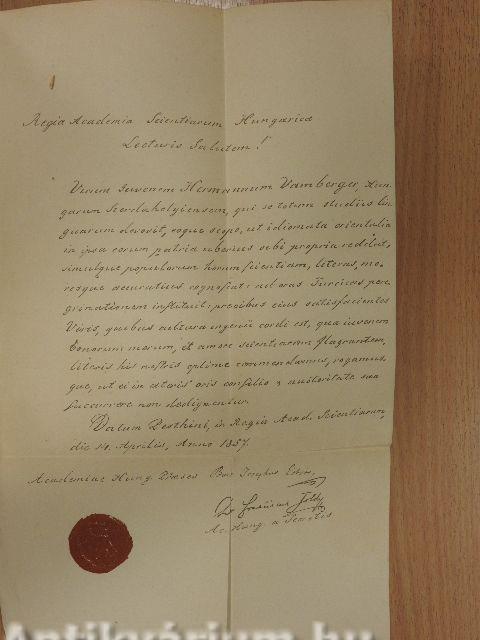 Regia Academia Scientiarum Hungarica
Lectoris Salutem!
Virum Juvenem Hermannum Vamberger, Hun-
garum Szerdahelyiensem, qui se totum studiis lin-
guarum devovit, eoque scopo, ut idiomata orientalia
in ipsa eorum patria uberius sibi propria reddat,
simulque populorum horum scientiam, literas, mo-
resque accuratius cognoscat: ad oras Turcicas pere-
grinationem instituit: precibus ejus satisfacientes
Viris, quibus cultura ingenii cordi est, qua juvenem
bonorum morum, et amore scientiarum flagrantem,
literis his nostris optime commendamus, rogamus-
que, ut ei in exteris oris consilio & auctoritate sua
succurrere non dedignentur.
Datum Pesthini, in Regia Acad. Scientiarum,
die 14. Aprilis, Anno 1857.
Academiae Hung. Praeses
Dr Franciscus Toldy
Ac. Hung. a Secretis
Antikvárium.hu